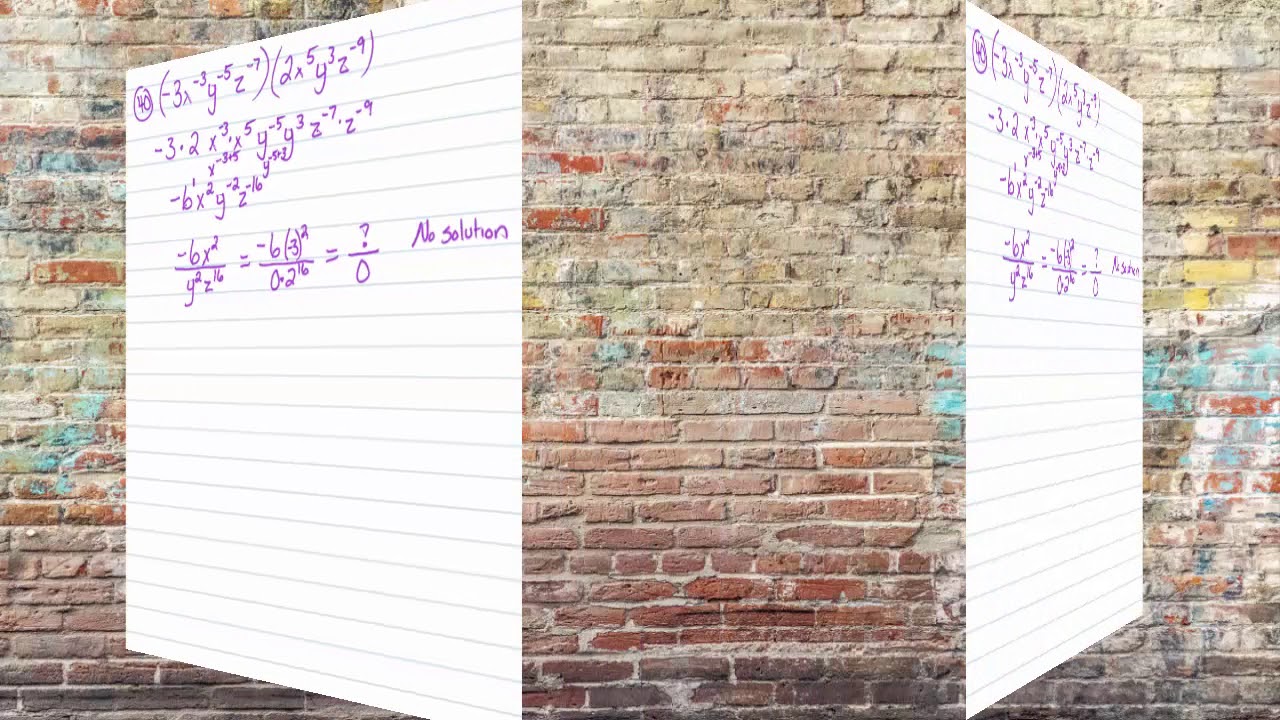 40 (-3x⁻³y⁻⁵z⁻⁷)(2x⁵y³z⁻⁹)
-3·2 x⁻³·x⁵ y⁻⁵y³ z⁻⁷·z⁻⁹
x⁻³⁺⁵ y⁻⁵⁺³
-6¹x²y⁻²z⁻¹⁶
-6x²/y²z¹⁶ = -6(-3)²/0·2¹⁶ = ?/0 No solution
40 (-3x⁻³y⁻⁵z⁻⁷)(2x⁵y³z⁻⁹)
-3·2 x⁻³·x⁵ y⁻⁵y³ z⁻⁷·z⁻⁹
x⁻³⁺⁵ y⁻⁵⁺³
-6¹x²y⁻²z⁻¹⁶
-6x²/y²z¹⁶ = -6(-3)²/0·2¹⁶ = ?/0 No solution